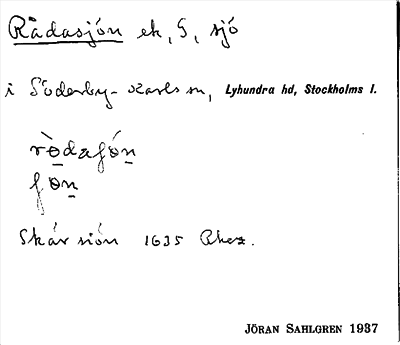 Rådasjön ek, 5, sjö
i Söderby-Karls sn, Lyhundra hd, Stockholms l.
rò̱daʃón̲
ʃon̲
Skår siön 1635 Rhez.
JÖRAN SAHLGREN 1937